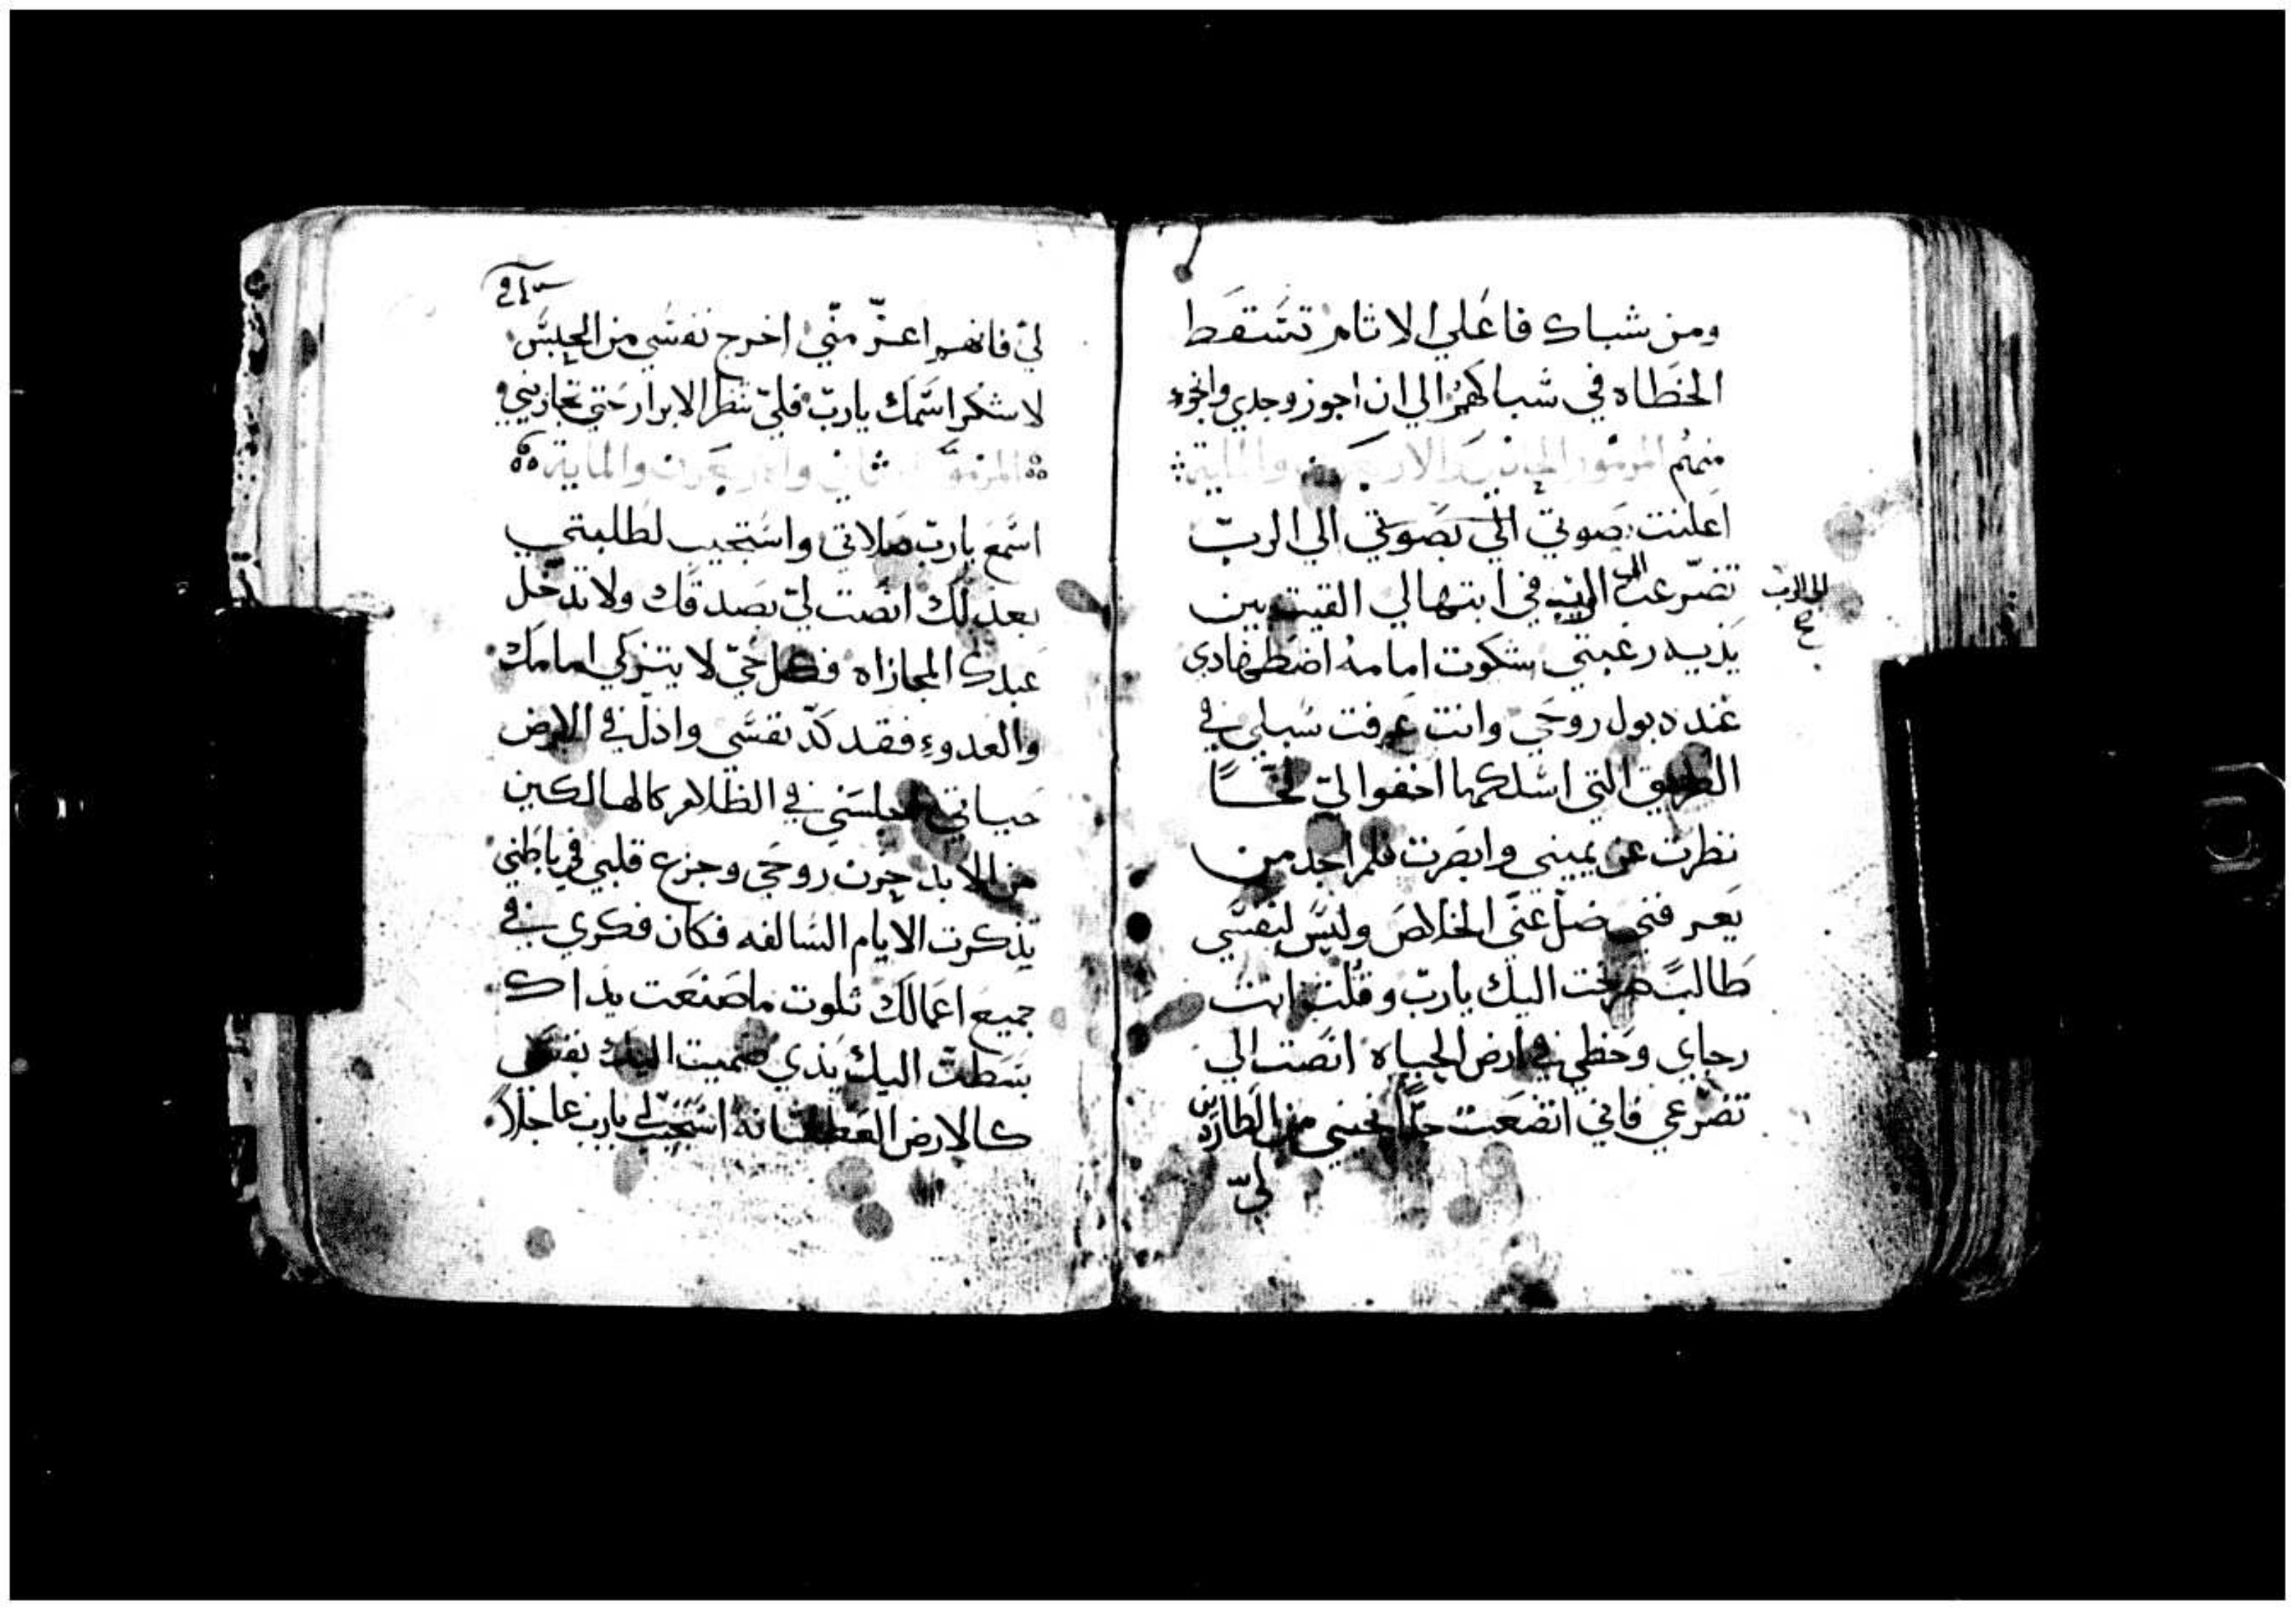 ومن شباك فاعلي الاثام تسقط
الخطاه في شباكهم الي ان اجوز وحدي وانجوء
منهم المزمور الحادي والاربعون والماية
اعلنت صوتي الي بصوتي الي الرب
تضرعت اليه في ابتهالي القيت بين
الي الرب
صح
يديه رغبتي شكوت امامه اضطهادي
عند دبول روحي وانت عرفت سبلي في
الطريق التي اسلكها اخفوا لي فخا
نظرت عن يميني وابصرت فلم اجد من
يعرفني ضل عني الخلاص وليس لنفسي
طالب صرخت اليك يارب وقلت انت
رجاي وحظي في ارض الحياه انصت الي
تضرعي فاني اتضعت جدا نجني من الطاردين
لي
لي فانهم اعز مني اخرج نفسي من الحبس
لاشكر اسمك يارب فلي تنظر الابرار حتي تجازيني
المزمور الثاني والاربعون والماية
اسمع يارب صلاتي واستجيب لطلبتي
بعدلك انصت لي بصدقك ولا تدخل
عبدك المجازاه فكل حي لا يتزكي امامك
والعدوء فقد كد نفسي واذل في الارض
حياتي اجلسني في الظلام كالهالكين
من الابد حزن روحي وجزع قلبي في باطني
تذكرت الايام السالفه فكان فكري في
جميع اعمالك تلوت ما صنعت يداك
بسطت اليك يدي صميت اليك نفسي
كالارض العطشانه استجب لي يارب عاجلا